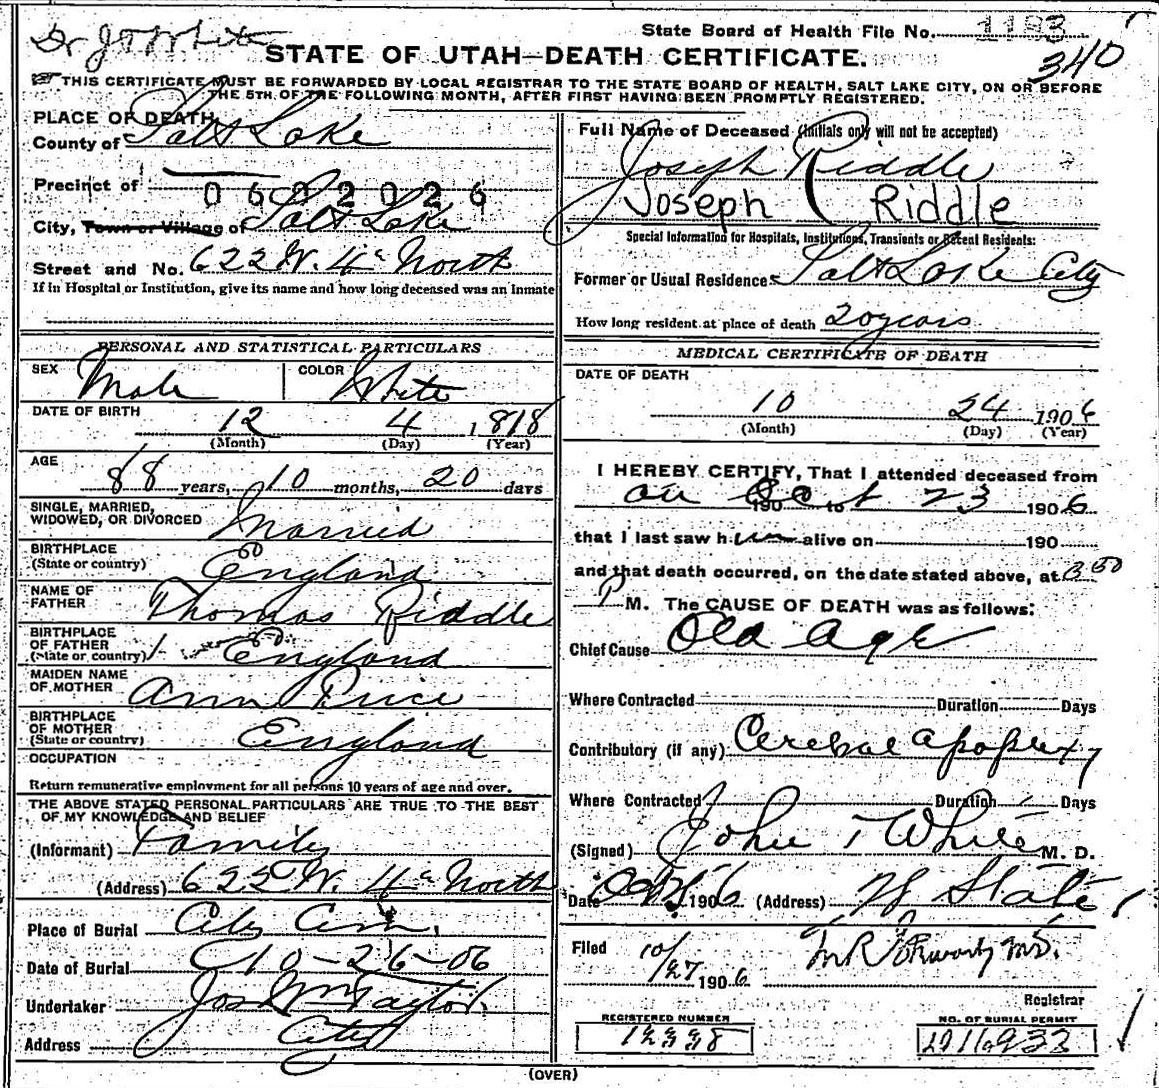 Dr J T White
State Board of Health File No. 1193
340
STATE OF UTAH—DEATH CERTIFICATE.
THIS CERTIFICATE MUST BE FORWARDED BY LOCAL REGISTRAR TO THE STATE BOARD OF HEALTH, SALT LAKE CITY, ON OR BEFORE
THE 5TH OF THE FOLLOWING MONTH, AFTER FIRST HAVING BEEN PROMPTLY REGISTERED.
PLACE OF DEATH
County of Salt Lake
Precinct of
0602026
City, Town or Village of Salt Lake
Street and No. 622 W. 4th North
If in Hospital or Institution, give its name and how long deceased was an Inmate
PERSONAL AND STATISTICAL PARTICULARS
SEX Male COLOR White
DATE OF BIRTH 12 4 1818
(Month) (Day) (Year)
AGE 88 years, 10 months, 20 days
SINGLE, MARRIED,
WIDOWED, OR DIVORCED Married
BIRTHPLACE
(State or country) England
NAME OF
FATHER Thomas Riddle
BIRTHPLACE
OF FATHER
(State or country) England
MAIDEN NAME
OF MOTHER Ann Price
BIRTHPLACE
OF MOTHER
(State or country) England
OCCUPATION
Return remunerative employment for all persons 10 years of age and over.
THE ABOVE STATED PERSONAL PARTICULARS ARE TRUE TO THE BEST
OF MY KNOWLEDGE AND BELIEF
(Informant) Family
(Address) 622 W. 4th North
Place of Burial City Cem.
Date of Burial 10-26-06
Undertaker Jos Wm Taylor
Address City
Full Name of Deceased (Initials only will not be accepted)
Joseph Riddle
Joseph Riddle
Special Information for Hospitals, Institutions, Transients or Recent Residents:
Former or Usual Residence Salt Lake City
How long resident at place of death 20 years
MEDICAL CERTIFICATE OF DEATH
DATE OF DEATH
10 24 1906
(Month) (Day) (Year)
I HEREBY CERTIFY, That I attended deceased from
on Oct 23 190 to 1906
that I last saw him alive on 190
and that death occurred, on the date stated above, at 3 50
P M. The CAUSE OF DEATH was as follows:
Chief Cause Old age
Where Contracted Duration Days
Contributory (if any) Cerebral apoplexy
Where Contracted Duration Days
(Signed) John T White M. D.
Date Oct 1906 (Address) State
Filed 10/27 1906
M.D.
Registrar
REGISTERED NUMBER
NO. OF BURIAL PERMIT
(OVER)